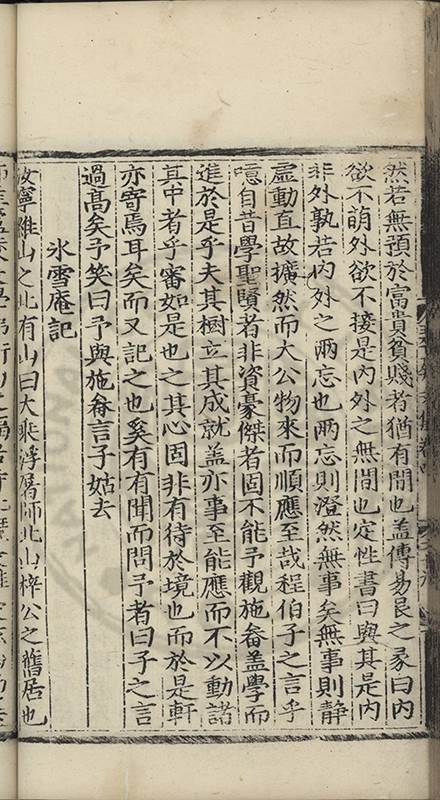 然若無預於富貴貧賤者猶有間也盖傳易艮之彖曰内
欲不萌外欲不接是内外之無間也定性書曰與其是内
非外孰若内外之兩忘也兩忘則澄然無事矣無事則静
虚動直故擴然而大公物來而順應至哉程伯子之言乎
噫自昔學聖賢者非資豪傑者固不能予觀施畚盖學而
進於是乎夫其樹立其成就盖亦事至能應而不以動諸
其中者乎審如是也之其心固非有待於境也而於是軒
亦寄焉耳矣而又記之也奚有有聞而問予者曰子之言
過髙矣予笑曰予與施畚言子姑去
氷雪庵記
汝寧雉山之北有山曰大乗浮屠師北山梓公之舊居也